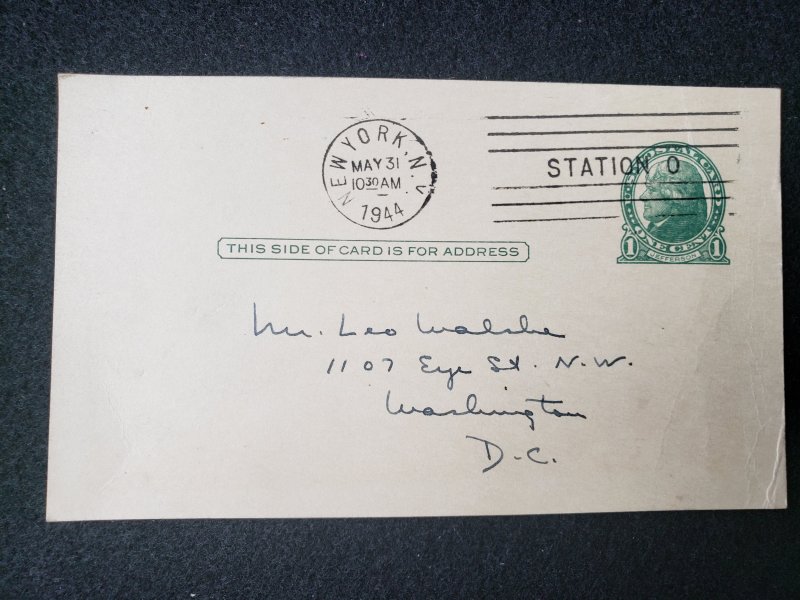 NEW YORK, N.Y.
MAY 31
10 30 AM
1944
STATION O
U.S. POSTAL CARD
ONE CENT
1 JEFFERSON 1
THIS SIDE OF CARD IS FOR ADDRESS
Mr. Leo Walshe
1107 Eye St. N.W.
Washington
D.C.